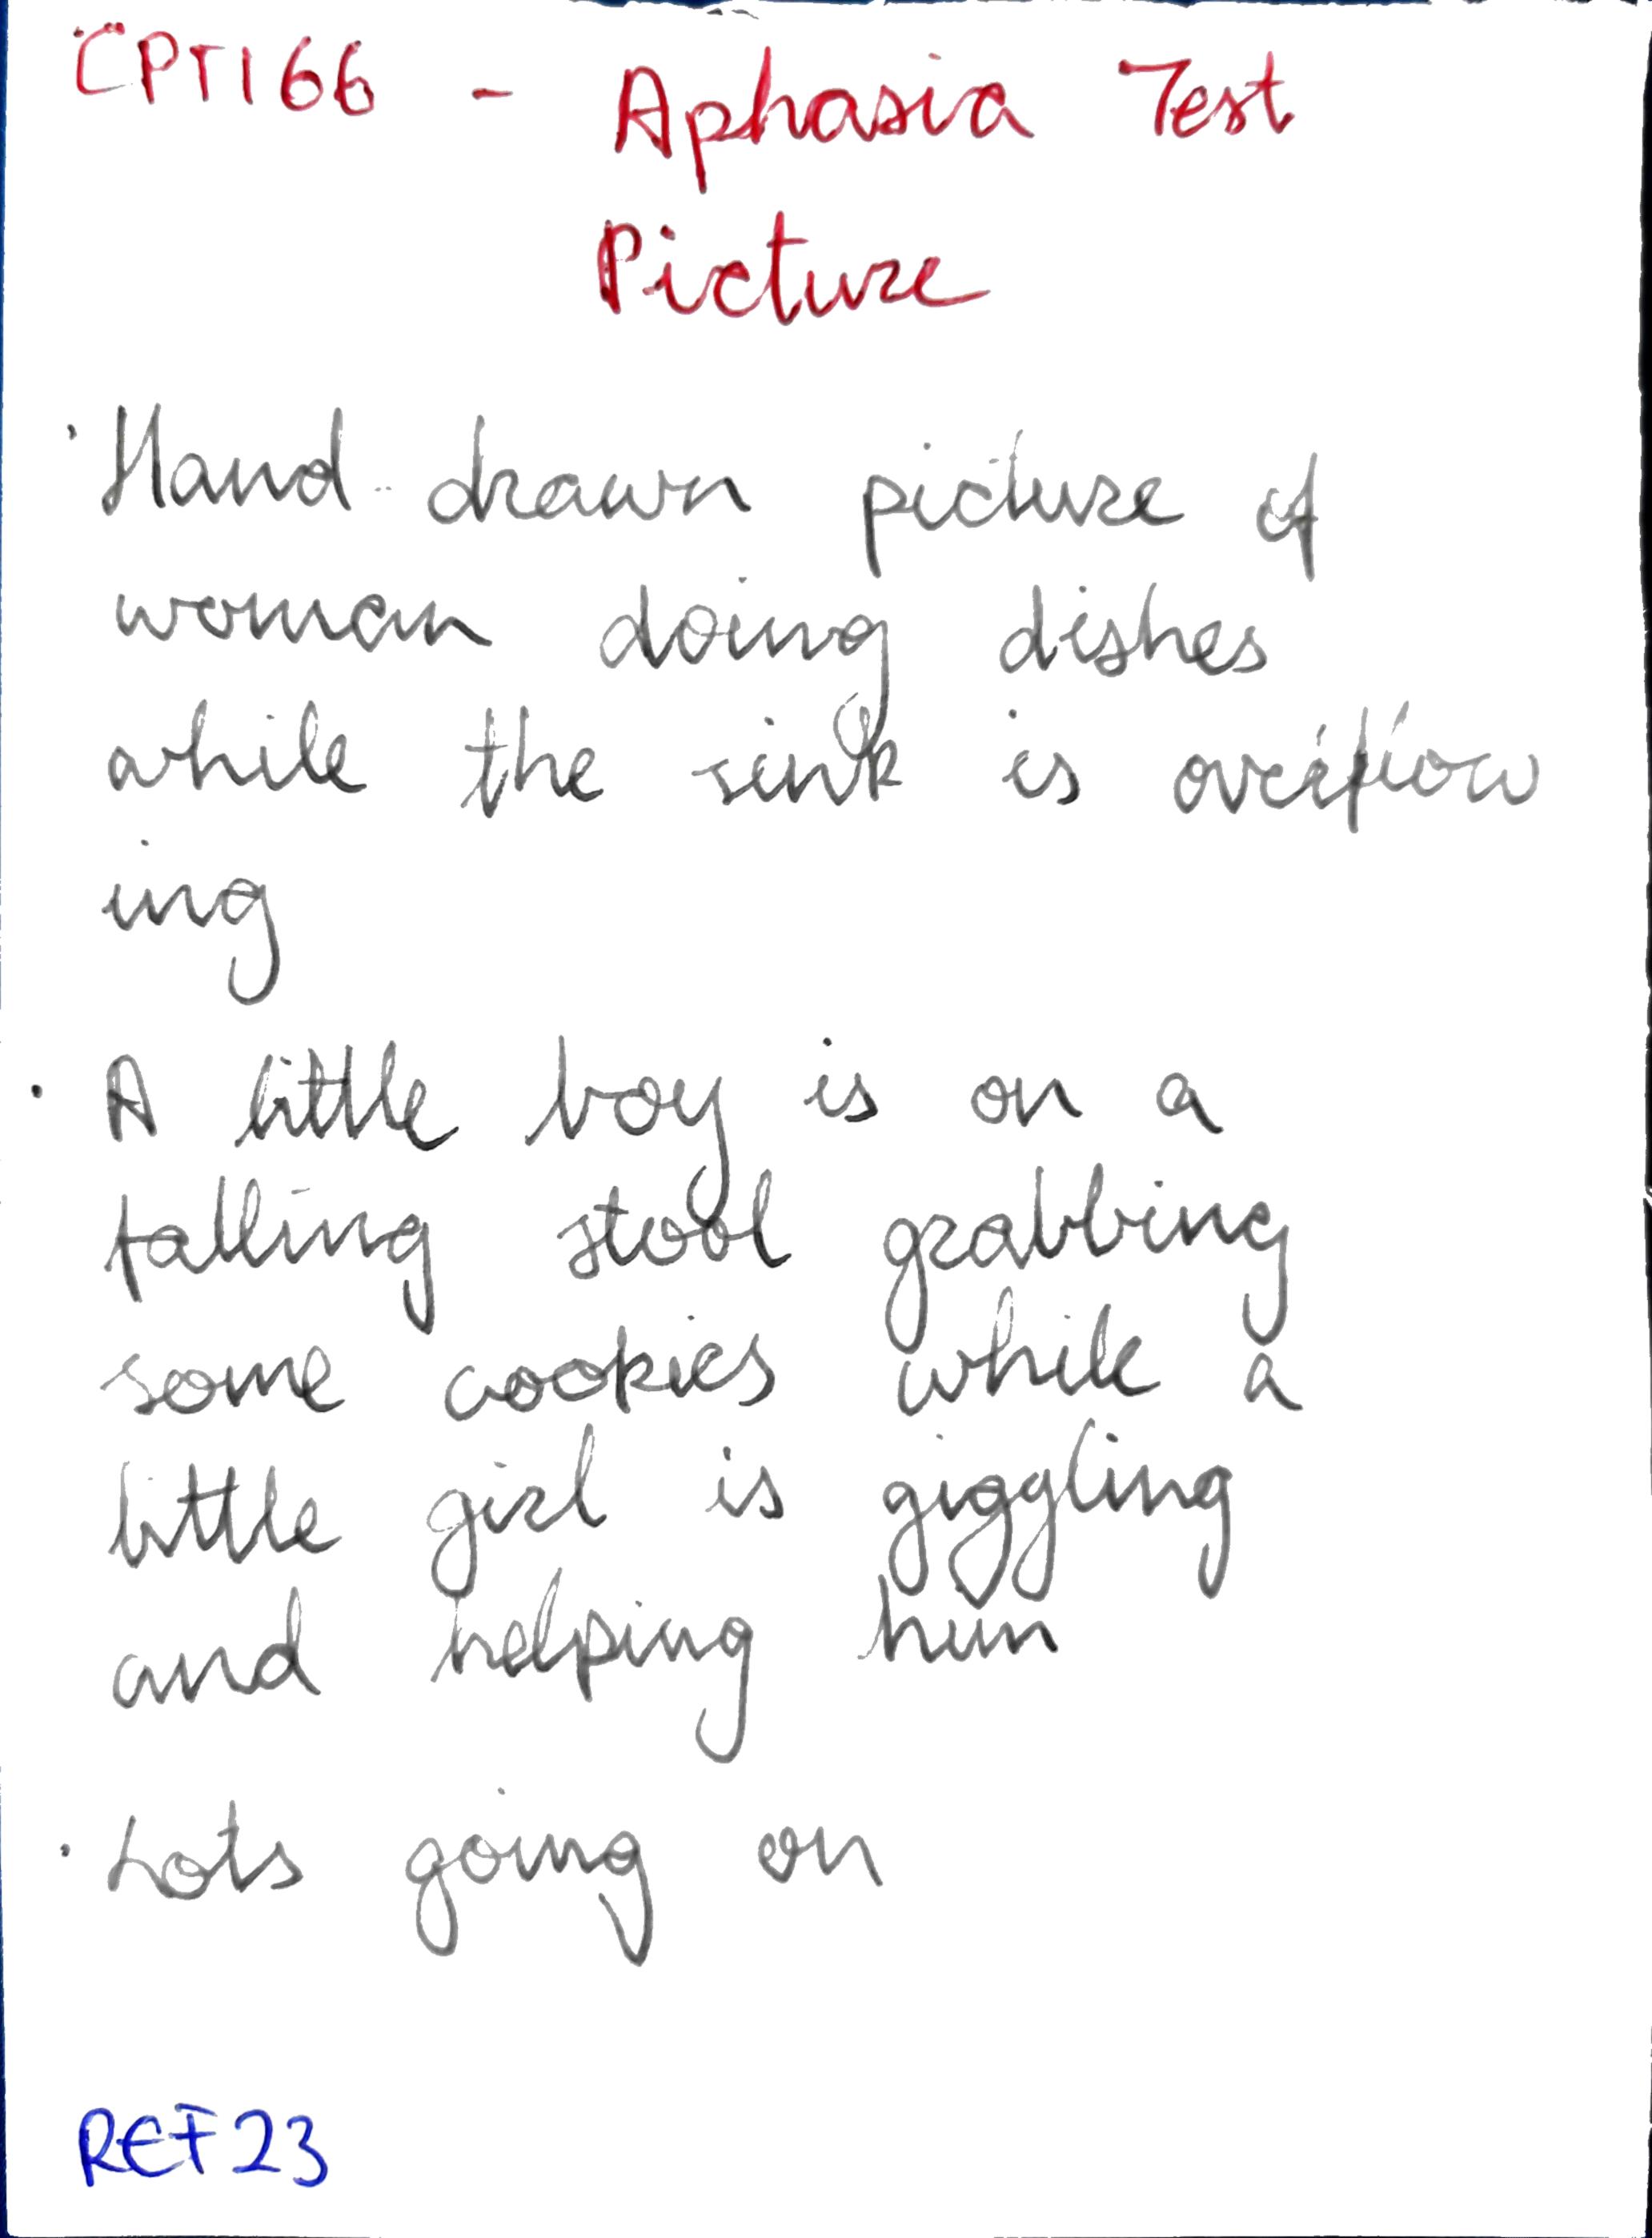 CPT166 - Aphasia Test
Picture
· Hand-drawn picture of
woman doing dishes
while the sink is overflow
ing
· A little boy is on a
falling stool grabbing
some cookies while a
little girl is giggling
and helping him
· Lots going on
REF23